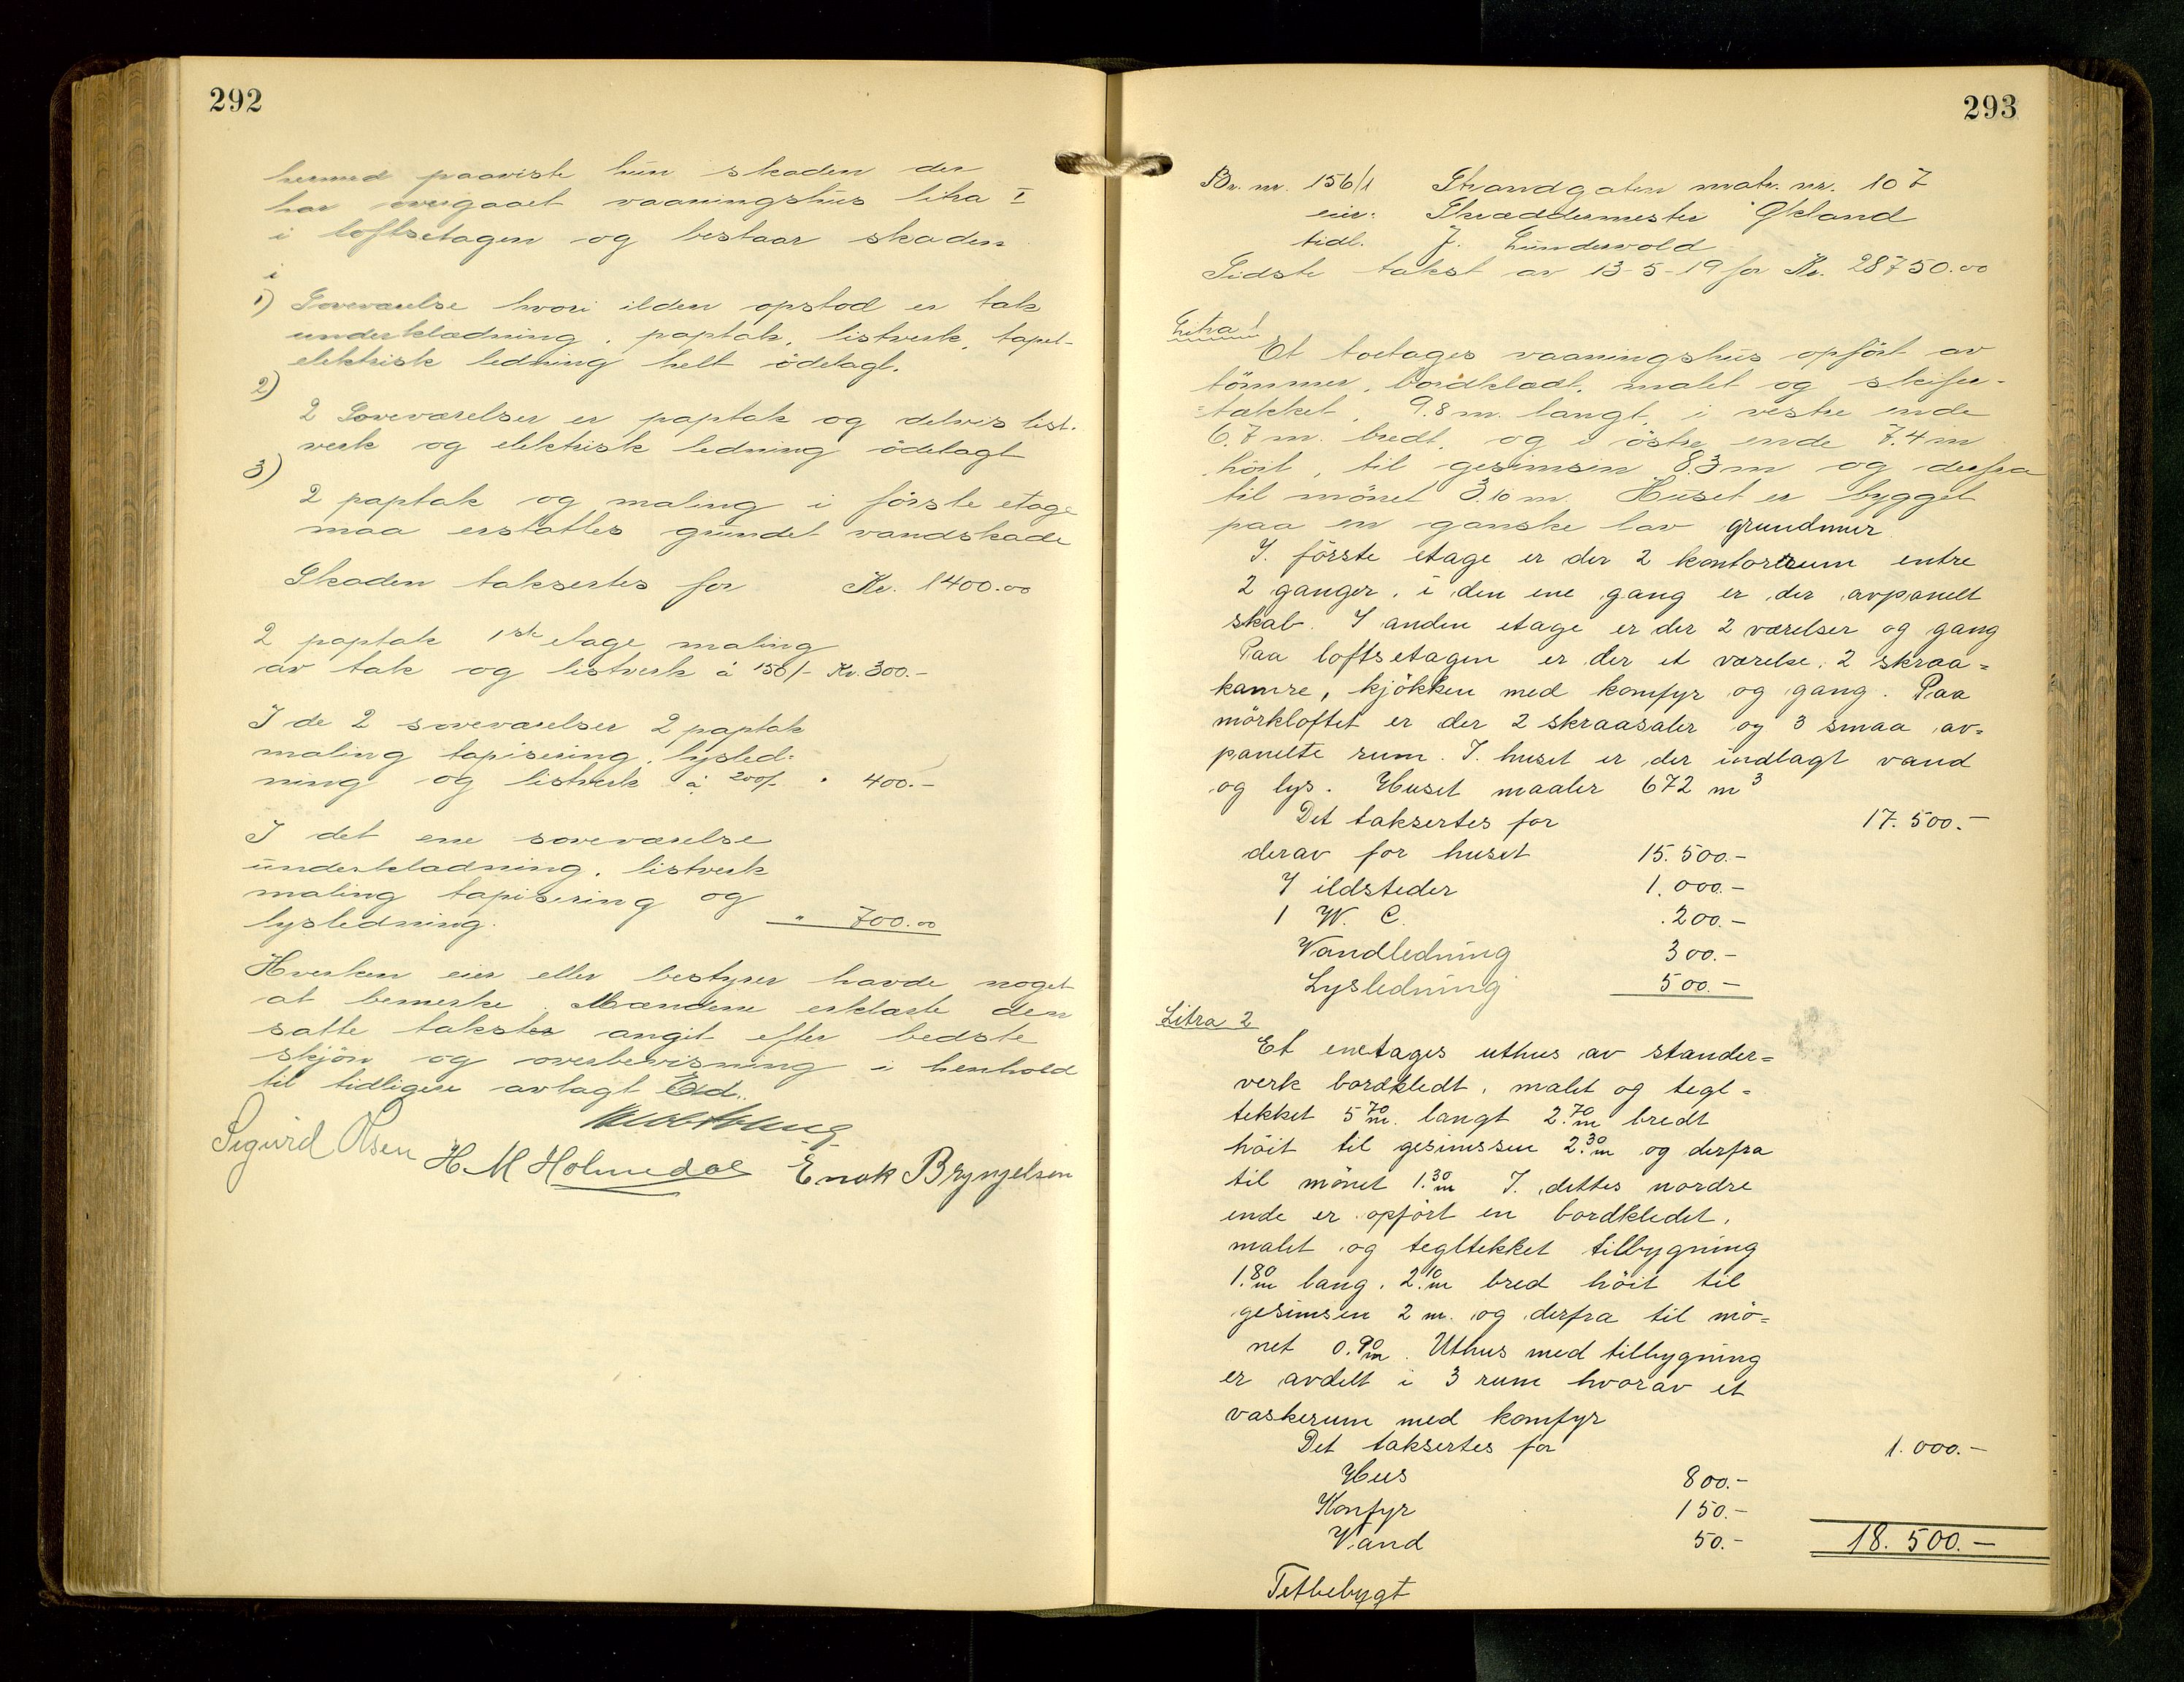 292
hermed paaviste hun skaden der
har overgaaet vaaningshus litra I
i loftsetagen og bestaar skaden
i
1) Soveværelse hvori ilden opstod er tak
underklædning, paptak, listverk, tapet-
elektrisk ledning helt ödelagt.
2)
2 Soveværelser er paptak og delvis list-
verk og elektrisk ledning ödelagt
3)
2 paptak og maling i förste etage
maa erstattes grundet vandskade
Skaden taksertes for Kr. 1400.00
2 paptak 1ste etage maling
av tak og listverk á 150/- Kr. 300.-
I de 2 soveværelser 2 paptak
maling tapisering, lysled-
ning og listverk á 200/- " 400.-
I det ene soveværelse
underkladning, listverk
maling tapisering og
lysledning. " 700.00
Hverken eier eller bestyrer havde noget
at bemerke. Mændene erklærte den
satte takster angit efter bedste
skjön og overbevisning i henhold
til tidligere avlagt Ed.
Sigurd Olsen H M Holmedal Enok Bryngelsen
293
Br. nr. 156/1 Strandgaten matr. nr. 107
eier: Skræddermester Økland
tidl. J. Lundervold
Sidste takst av 13-5-19 for Kr. 28750.00
Litra 1
Et toetages vaaningshus opfört av
tömmer, bordklædt, malet og skifer-
tækket, 9.8 m. langt, i vestre ende
6.7 m. bredt, og i östre ende 7.4 m
höit, til gesimsen 8.3 m og derfra
til mönet 3.10 m. Huset er bygget
paa en ganske lav grundmur.
I. förste etage er der 2 kontorrum entre
2 ganger, i den ene gang er der avpanelt
skab. I anden etage er der 2 værelser og gang
Paa loftsetagen er der et værelse, 2 skraa=
kamre, kjökken med komfyr og gang. Paa
mörkloftet er der 2 skraasaler og 3 smaa av=
panelte rum. I. huset er der indlagt vand
og lys. Huset maaler 672 m³
Det taksertes for 17.500.-
derav for huset 15.500.-
7 ildsteder 1.000.-
1 W. C. 200.-
Vandledning 300.-
Lysledning 500.-
Litra 2
Et enetages uthus av stander=
verk bordkledt, malet og tegl=
tekket 5.70 m. langt 2.70 m bredt
höit til gesimssen 2.30 m og derfra
til mönet 1.30 m I. dettes nordre
ende er opfört en bordkledet,
malet og tegltekket tilbygning
1.80 m lang, 2.10 m bred höit til
gesimsen 2 m. og derfra til mö=
net 0.90 m. Uthus med tilbygning
er avdelt i 3 rum hvorav et
vaskerum med komfyr
Det taksertes for 1.000.-
Hus 800.-
Konfyr 150.-
Vand 50.- 18.500.-
Tetbebygt